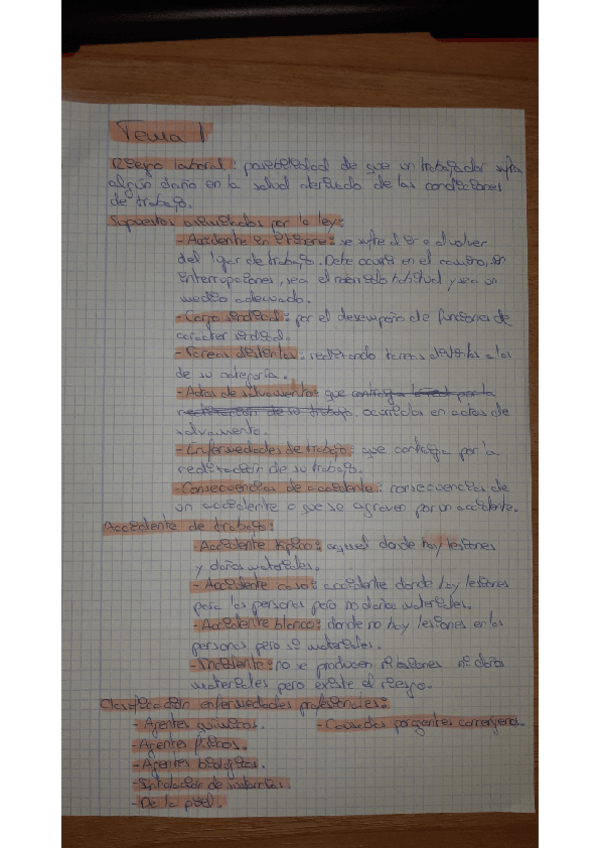 Tema 1
Riesgo laboral: posibilidad de que un trabajador sufra
algún daño en la salud derivado de las condiciones
de trabajo.
Supuestos asimilados por la ley:
- Accidente in itinere: se sufre al ir o al volver
del lugar de trabajo. Debe ocurrir en el camino, sin
interrupciones, sea el recorrido habitual y sea un
medio adecuado.
- Cargo sindical: por el desempeño de funciones de
carácter sindical.
- Tareas distintas: realizando tareas distintas a las
de su categoría.
- Actos de salvamento: que contraiga por la
realización de su trabajo. ocurridos en actos de
salvamento.
- Enfermedades de trabajo: que contraiga por la
realización de su trabajo.
- Consecuencias de accidente: consecuencias de
un accidente o que se agraven por un accidente.
Accidente de trabajo:
- Accidente típico: aquel donde hay lesiones
y daños materiales.
- Accidente caso: accidente donde hay lesiones
para las personas pero no daños materiales.
- Accidente blanco: donde no hay lesiones en las
personas pero sí materiales.
- Incidente: no se producen ni lesiones ni daños
materiales pero existe el riesgo.
Clasificación enfermedades profesionales:
- Agentes químicos. - Causadas por agentes
- Agentes físicos.
- Agentes biológicos.
- Inhalación de sustancias.
- De la piel.